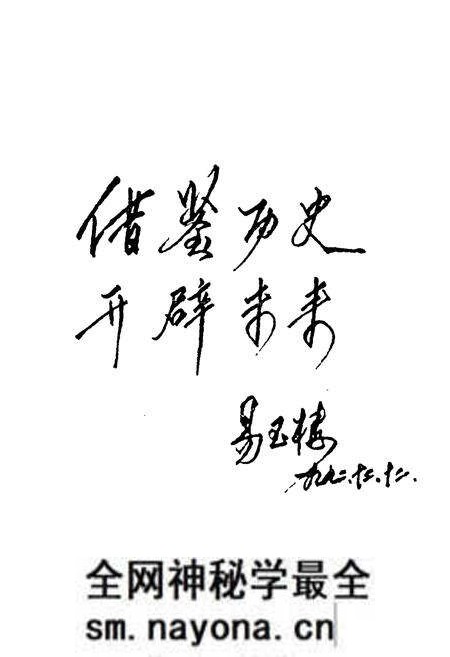 借鉴历史
开辟未来
易玉楼
九九二.十二.十二.
全网神秘学最全
sm.nayona.cn